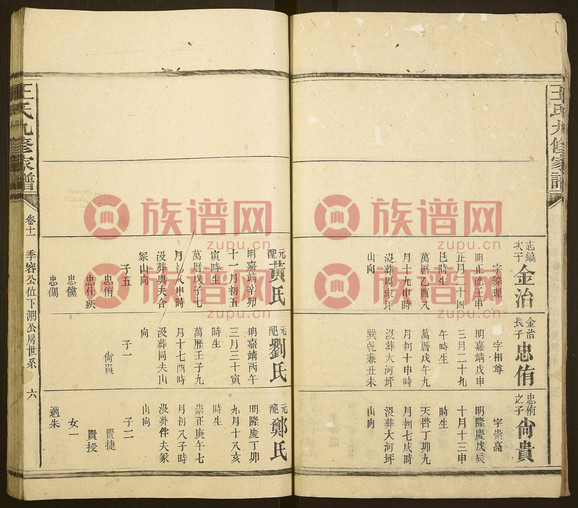 王氏九修家譜
志鎬
次子
金治
字驛理
明正德壬申
正月二十四
巳時生
萬曆乙酉八
月十九申時
山向
金治
長子
忠侑
字相尊
明嘉靖戊申
三月二十九
午時生
萬曆戊午九
月初十申時
沒葬大河坪
巽乾兼世未
忠侑
之子
尚貴
字崇高
明隆慶戊辰
十月十三申
時生
天啓丁卯九
月初七戌時
沒葬大河坪
山向
元
配
黃氏
明嘉靖辛卯
十一月初五
寅時生
萬曆戊子七
沒葬與夫合
冢山向
子五
忠侑
忠儻
忠倜
元
配
劉氏
明嘉靖丙午
三月三十寅
時生
萬曆壬子九
月十七酉時
沒葬同夫山
向
子一
尚貴
元
配
鄭氏
明隆慶丁卯
九月十八亥
時生
崇正庚午七
月初八子時
沒葬伴夫冢
山向
子二
賢捷
賢授
女一
適朱
王氏九修家譜
卷十一
季睿公位下湖公房世系
六
族谱网
族谱网
族谱网
族谱网
族谱网
族谱网